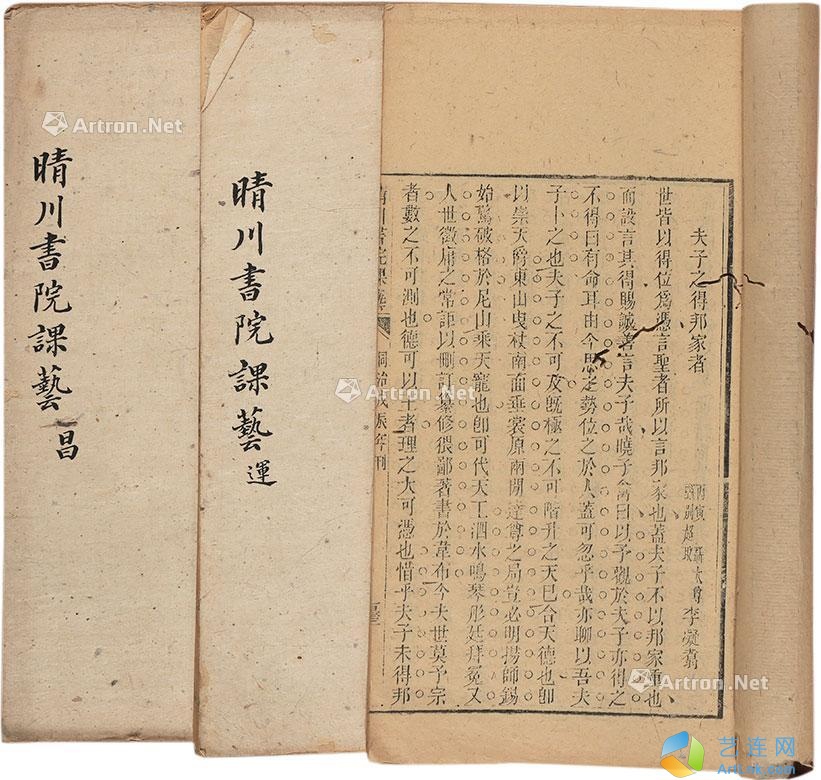 晴川書院課藝 昌
晴川書院課藝 運
夫子之得邦家者
李凝翯
世皆以得位爲憑言聖者所以言邦家也蓋夫子不以邦家重也
而設言其得賜誠善言夫子哉曉子禽曰以予觀於夫子亦得之
不得曰有命耳由今思之勢位之於人蓋可忽乎哉亦聊以吾夫
子卜之也夫子之不可及旣極之不可階升之天已合天德也卽
以崇天爵東山曳杖南面垂裳原兩開達尊之局豈必明揚師錫
始驚破格於尼山乘天寵也卽可代天工泗水鳴琴彤廷拜冕又
人世徵庸之常詎以刪訂纂修猥鄙著書於韋布今夫世莫予宗
者數之不可測也德可以王者理之大可憑也惜乎夫子未得邦
晴川書院課藝
同治戊辰年刊
Artron.Net
Artron.Net
Artron.Net
Artron.Net
艺连网